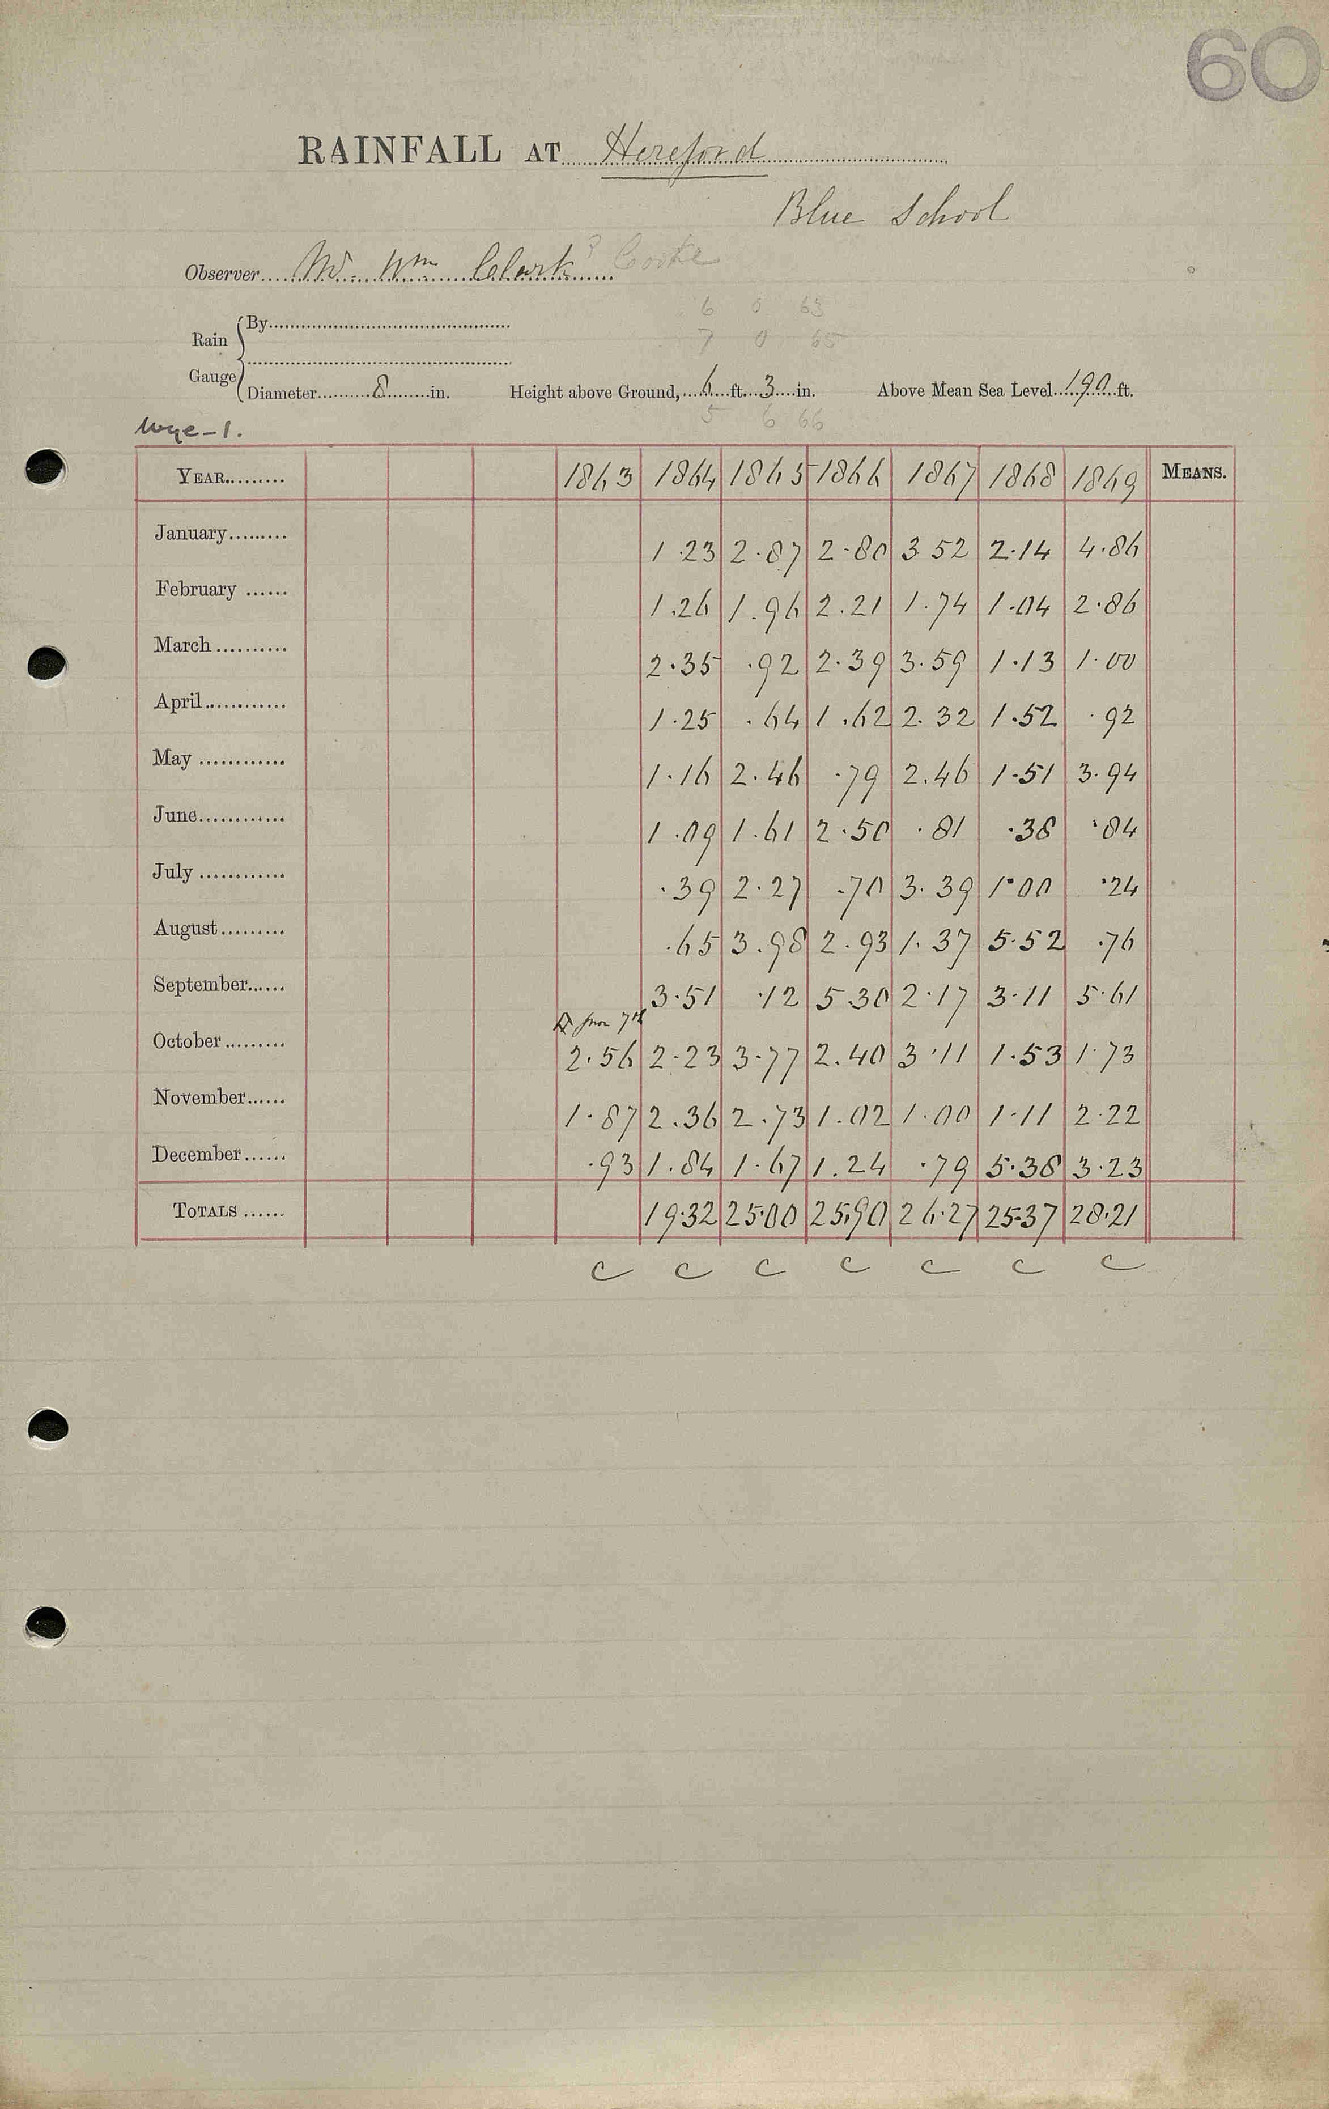 60
RAINFALL AT Hereford
Blue School
Observer Mr. Wm Clark ? Cooke
6 0 63
Rain Gauge By
7 0 65
Diameter 8 in. Height above Ground, 6 ft. 3 in. Above Mean Sea Level 190 ft.
5 6 66
Wye-1.
YEAR 1863 1864 1865 1866 1867 1868 1869 MEANS.
January 1.23 2.87 2.80 3.52 2.14 4.86
February 1.26 1.96 2.21 1.74 1.04 2.86
March 2.35 .92 2.39 3.59 1.13 1.00
April 1.25 .64 1.62 2.32 1.52 .92
May 1.16 2.46 .79 2.46 1.51 3.94
June 1.09 1.61 2.50 .81 .38 .84
July .39 2.27 .70 3.39 1.00 .24
August .65 3.98 2.93 1.37 5.52 .76
September 3.51 .12 5.30 2.17 3.11 5.61
from 7th
October 2.56 2.23 3.77 2.40 3.11 1.53 1.73
November 1.87 2.36 2.73 1.02 1.00 1.11 2.22
December .93 1.84 1.67 1.24 .79 5.38 3.23
TOTALS 19.32 25.00 25.90 26.27 25.37 28.21
C C C C C C C